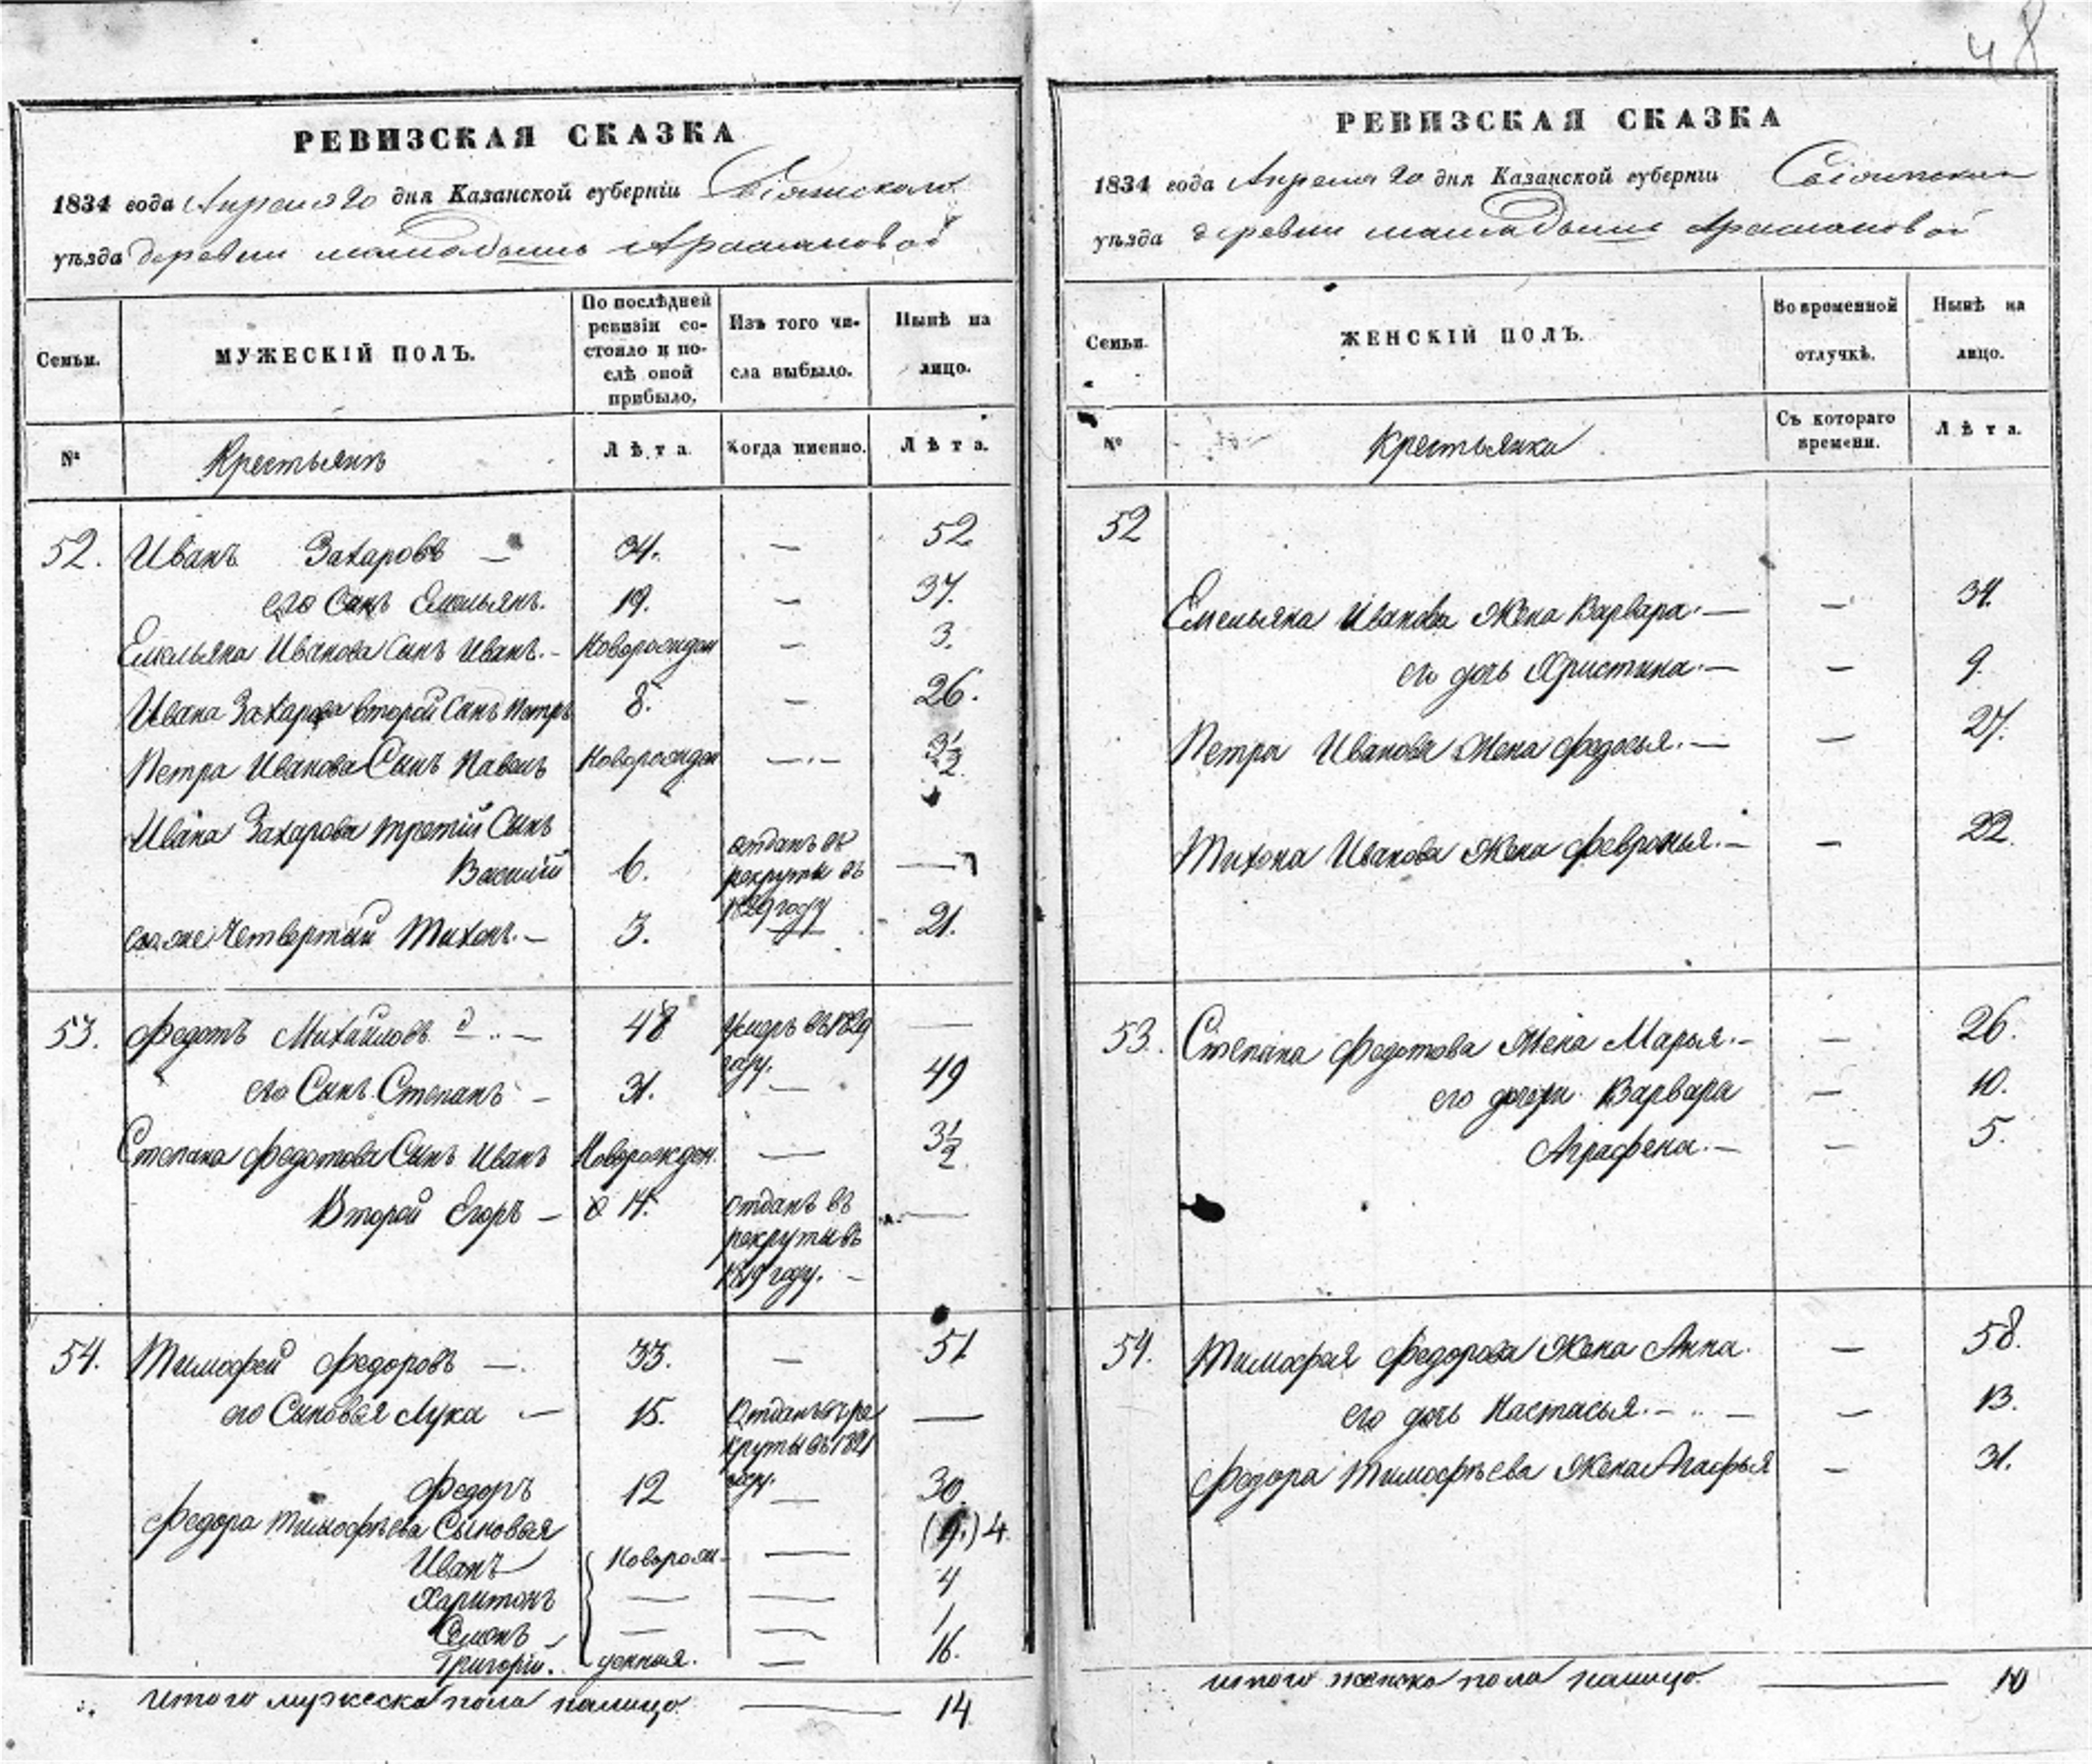 48
РЕВИЗСКАЯ СКАЗКА
1834 года Апреля 20 дня Казанской губерніи Свіяжскаго
уѣзда деревни
Семьи.
МУЖЕСКІЙ ПОЛЪ.
По послѣдней ревизіи состояло и послѣ оной прибыло,
Изъ того числа выбыло.
Нынѣ на лицо.
№
Крестьянъ
Лѣта.
Когда именно.
Лѣта.
52. Иванъ Захаровъ — 34. — 52
его Сынъ Емельянъ. 19. — 37.
Емельяна Иванова Сынъ Иванъ. — Новорожден — 3.
Ивана Захарова второй Сынъ Петръ 8. — 26.
Петра Иванова Сынъ Павелъ Новорожден — 3½
Ивана Захарова третій Сынъ
Василій 6. отданъ въ рекруты въ 1829 году —
его же четвертый Тихонъ. — 3. 21.
53. Федотъ Михайловъ — 48 Умеръ въ 1829 году. —
его Сынъ Степанъ — 31. — 49
Степана Федотова Сынъ Иванъ Новорожден. — 3½
Второй Егоръ — 14. Отданъ въ рекруты въ 1819 году. —
54. Тимофей Федоровъ — 33. — 51
его Сыновья Лука — 15. Отданъ въ рекруты въ 1821 году. —
Федоръ 12 — 30
Федора Тимофѣева Сыновья
Иванъ Новорож- — 4.
Харитонъ — — 4
Семенъ — — 1
Григорій. денныя. — 16.
итого мужеска пола налицо — 14
РЕВИЗСКАЯ СКАЗКА
1834 года Апреля 20 дня Казанской губерніи
уѣзда деревни
Семьи.
ЖЕНСКІЙ ПОЛЪ.
Во временной отлучкѣ.
Нынѣ на лицо.
№
Крестьянки
Съ котораго времени.
Лѣта.
52
Емельяна Иванова Жена Варвара. — — 34.
его дочь Христина. — — 9.
Петра Иванова Жена Федосья. — — 27.
Тихона Иванова Жена Февронья. — — 22.
53. Степана Федотова Жена Марья. — — 26.
его дочери Варвара — 10.
Аграфена. — — 5.
54. Тимофея Федорова Жена Анна. — 58.
его дочь Настасья. — — — 13.
Федора Тимофѣева Жена Агафья — 31.
итого женска пола налицо. — 10